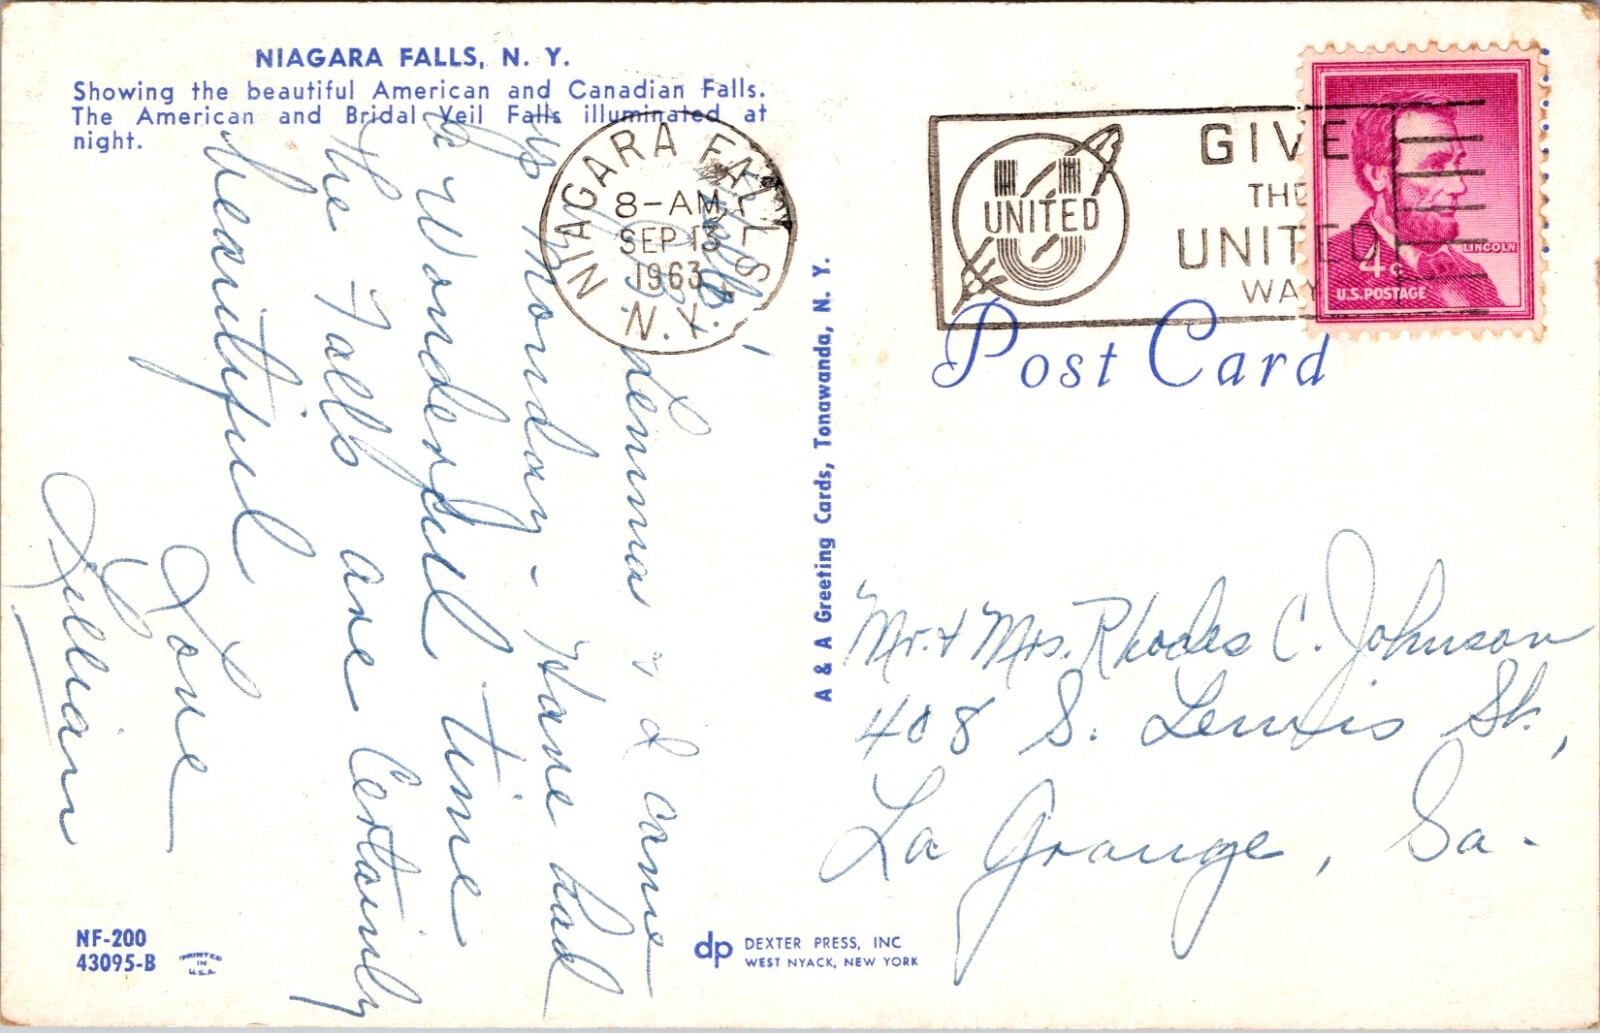 NIAGARA FALLS, N. Y.
Showing the beautiful American and Canadian Falls.
The American and Bridal Veil Falls illuminated at
night.
Hello,
Lemma & I came
up Monday - Have had
a wonderful time
The Falls are certainly
beautiful
Love
Lillian
NF-200
43095-B
PRINTED
IN
U.S.A.
A & A Greeting Cards, Tonawanda, N. Y.
dp DEXTER PRESS, INC
WEST NYACK, NEW YORK
NIAGARA FALLS
8-AM
SEP 13
1963
N.Y.
UNITED
GIVE
THE
UNITED
WAY
LINCOLN
4¢
U.S. POSTAGE
Post Card
Mr. & Mrs. Rhodes C. Johnson
408 S. Lewis St.,
La Grange, Ga.